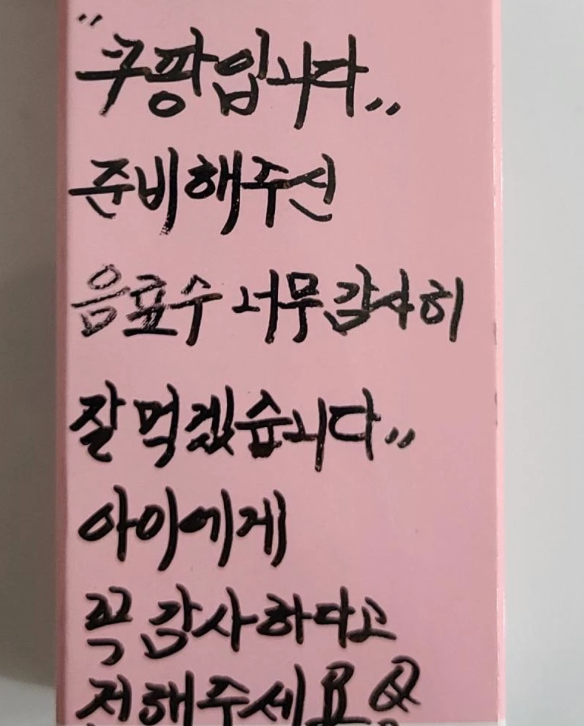 "쿠팡입니다,,
준비해주신
음료수 너무감사히
잘먹겠습니다,,
아이에게
꼭 감사하다고
전해주세요